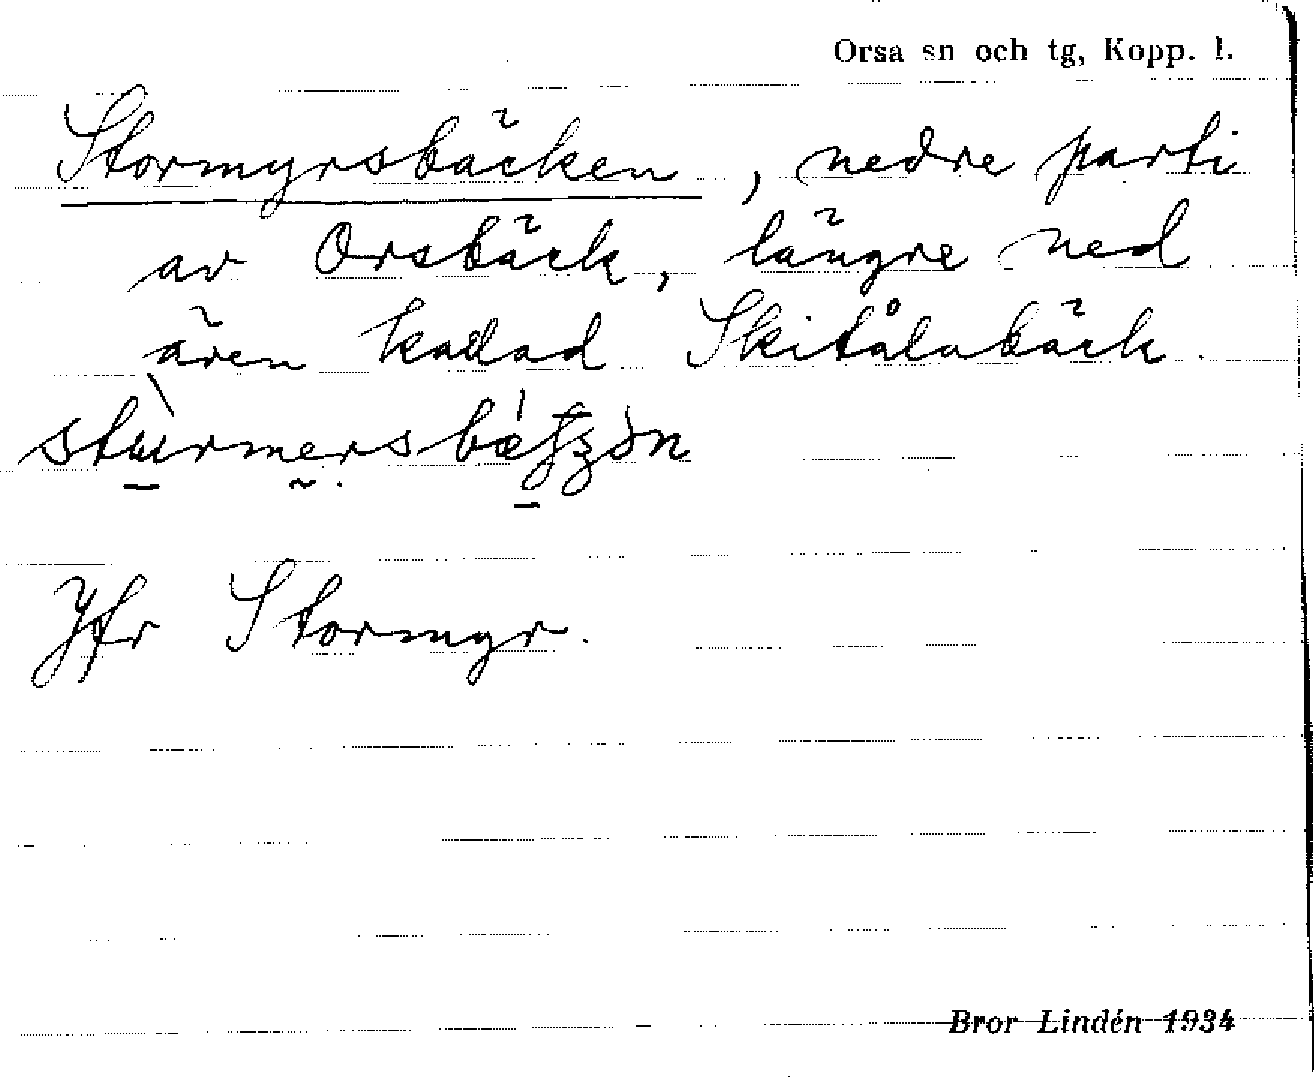 Orsa sn och tg, Kopp. l.
Stormyrsbäcken, nedre parti
av Orsbäck, längre ned
även kallad Skitålabäck.
Jfr Stormyr.
Bror Lindén 1934